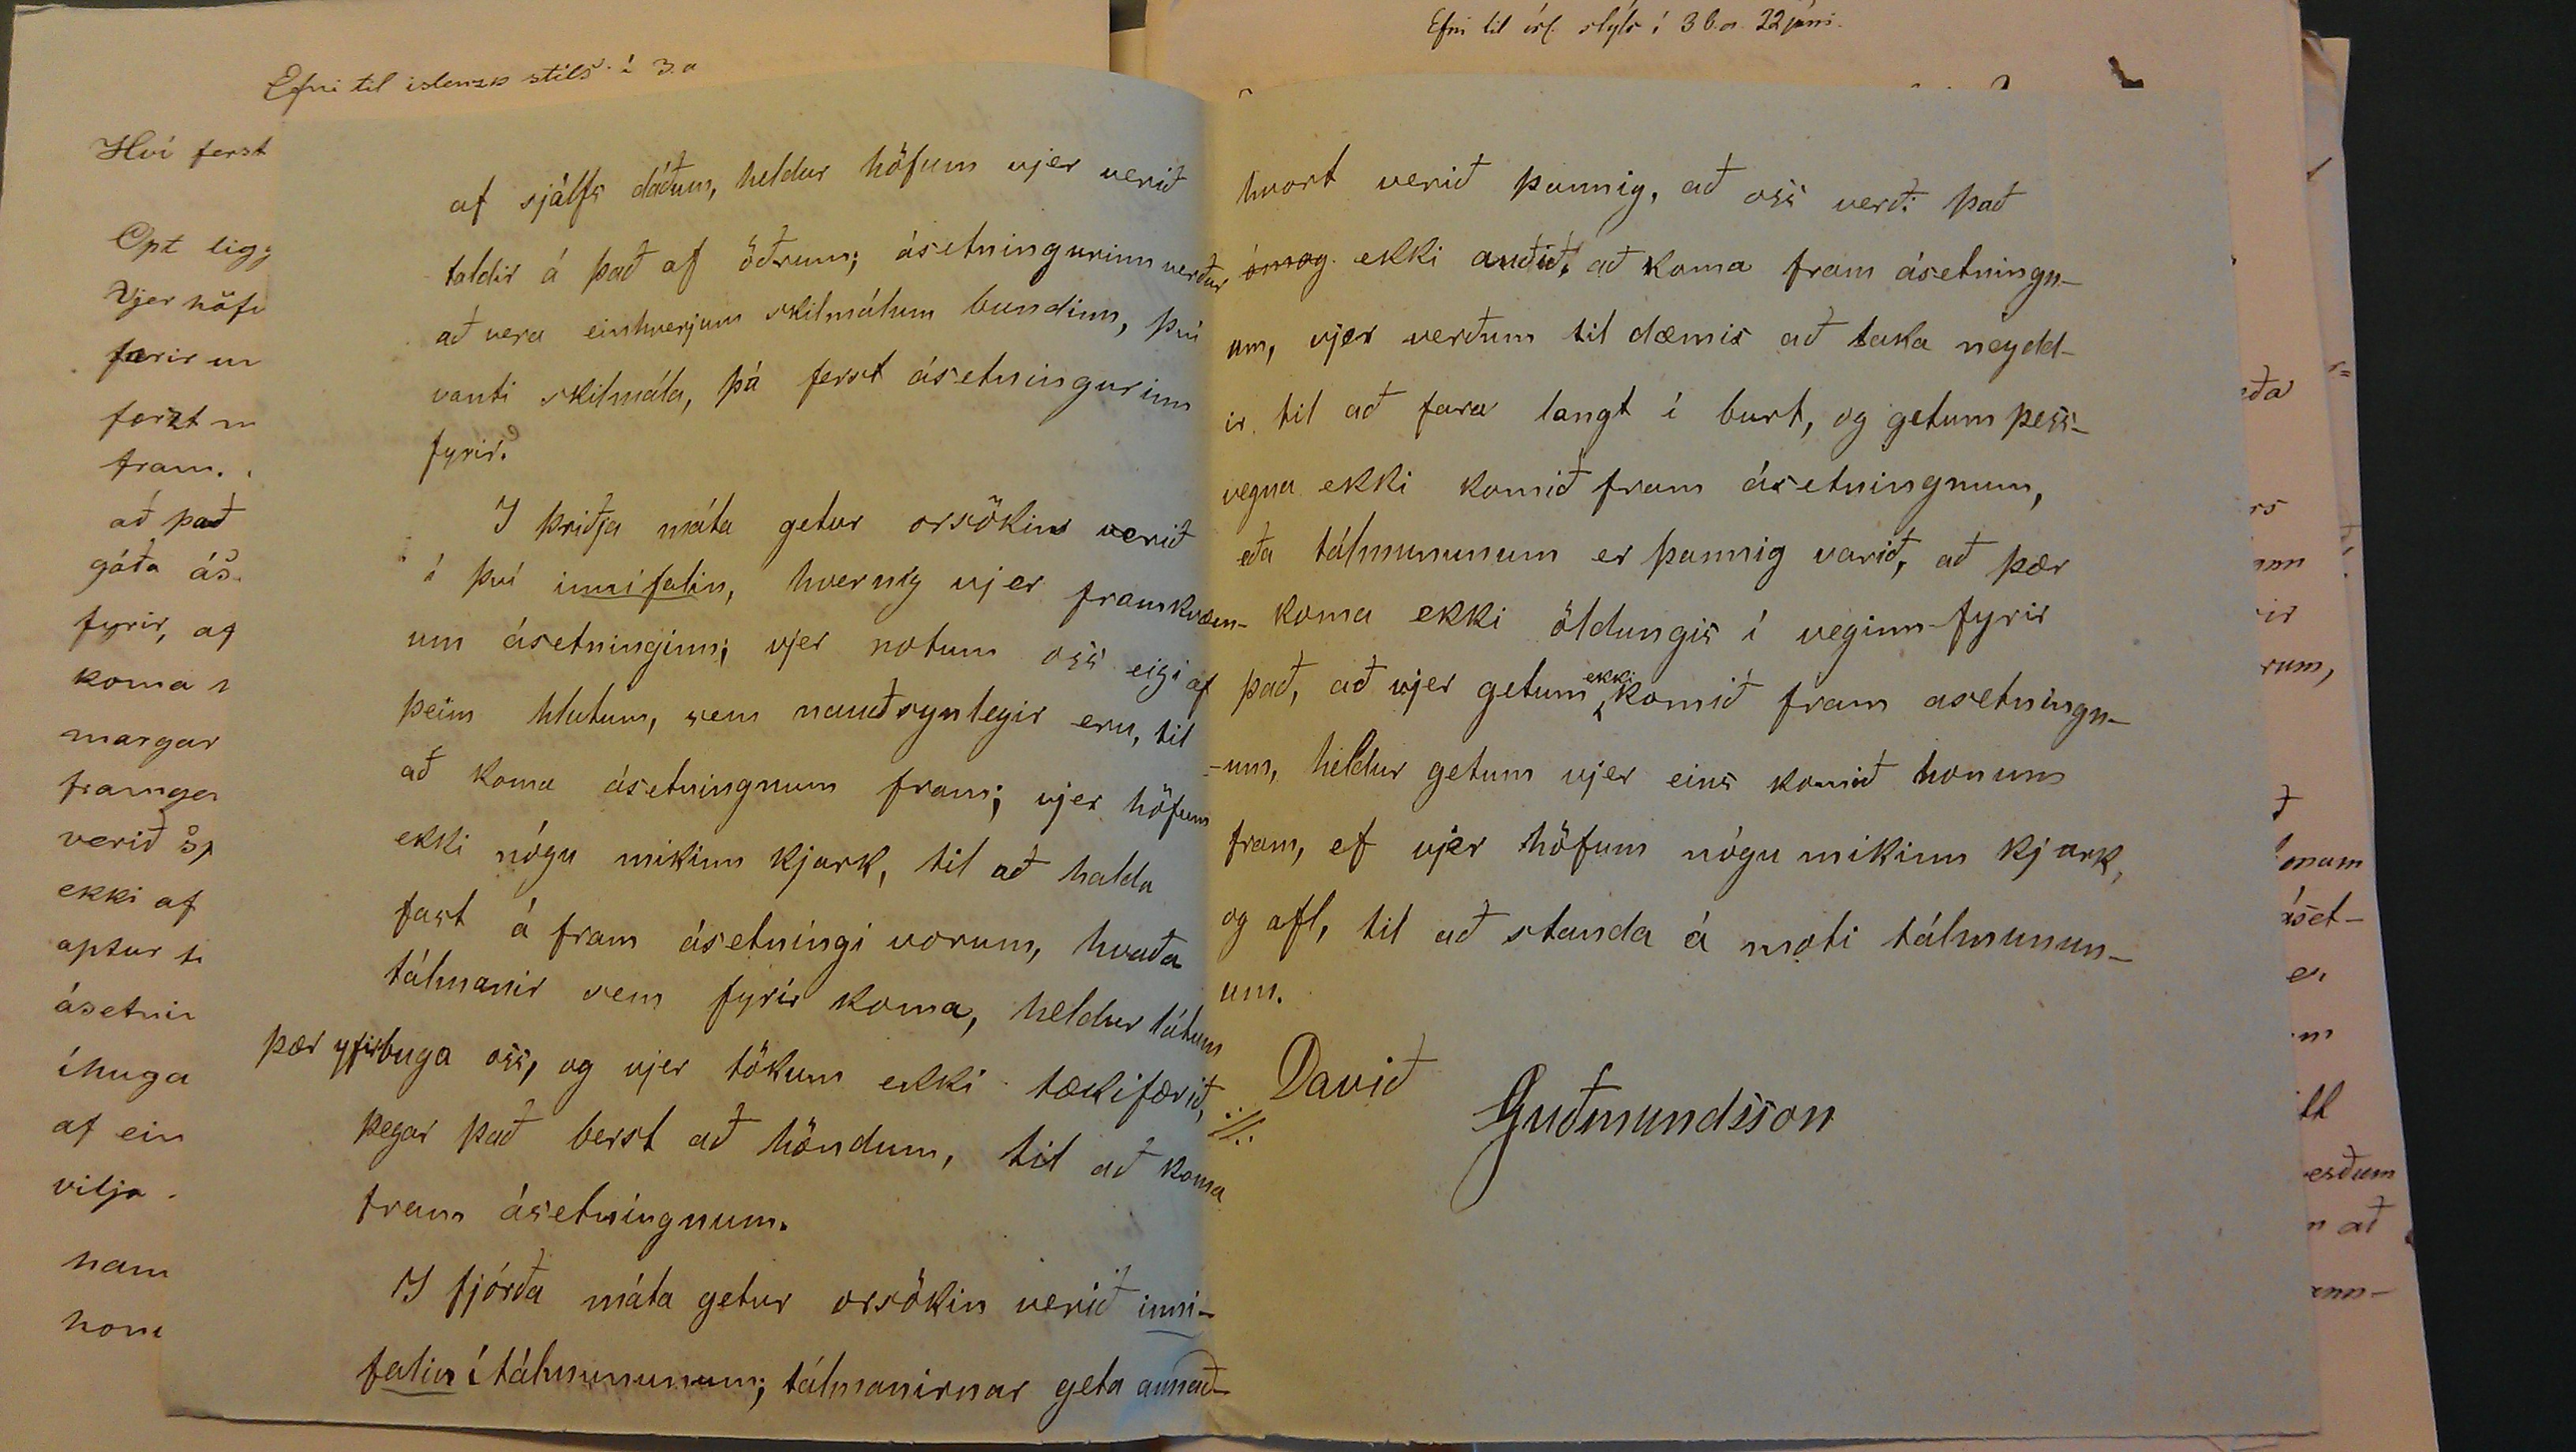 Efni til íslenzks stíls í 3. a
Efni til ísl. stýls í 3 b. a. 22 júni.
Hví ferst
Opt ligg
Vjer höfu
farir m
forzt m
fram.
að það
góða ás
fyrir, og
koma
margar
framgen
verið
ekki af
aptur
ásetnin
íhuga
af ein
vilja
hann
honu
af sjálfs dáðum, heldur höfum vjer verið
taldir á það af öðrum; ásetningurinn verður
að vera einhverjum skilmálum bundinn, því
vanti skilmála, þá ferst ásetningurinn
fyrir.
I þriðja máta getur orsökin verið
í því innifalin, hvernig vjer framkvæm-
um ásetninginn; vjer notum oss eigi af
þeim hlutum, sem nauðsynlegir eru, til
að koma ásetningnum fram; vjer höfum
ekki nógu mikinn kjark, til að halda
fast á fram ásetníngi vorum, hvaða
tálmanir sem fyrir koma, heldur látum
þær yfirbuga oss, og vjer tökum ekki tækifærið,
þegar það berst að höndum, til að koma
fram ásetníngnum.
I fjórða máta getur orsökin verið inni-
falin í tálmununum; tálmanirnar geta annað-
hvort verið þannig, að oss verði það
ómög ekki auðið, að koma fram ásetningn-
um, vjer verðum til dæmis að taka neydd-
ir til að fara langt í burt, og getum þess-
vegna ekki komið fram ásetningnum,
eða tálmununum er þannig varið, að þær
koma ekki öldungis í veginn fyrir
það, að vjer getum ekki komið fram asetningn-
-um, heldur getum vjer eins komið honum
fram, ef vjer höfum nógu mikinn kjark,
og afl, til að standa á moti tálmunun-
um.
Davið
Guðmundsson